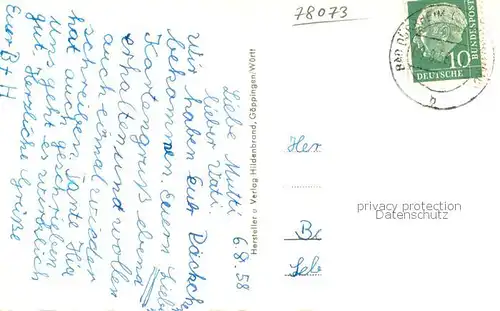 78073
BAD DÜRRHEIM
DEUTSCHE
BUNDESPOST
10
6.8.58
Liebe Mutti
lieber Vati
Wir haben Eur Päckche
bekommen Euern Liebe
Kartengruß ebend
erhalten und wollen
auch einmal wieder
schreiben. Tante Hia
hat auch geschrieben
Uns geht es wirklich
gut Herzliche Grüße
Euer B + H
Hersteller u Verlag Hildenbrand, Göppingen/Württ
Her
Be
Leb
privacy protection
Datenschutz